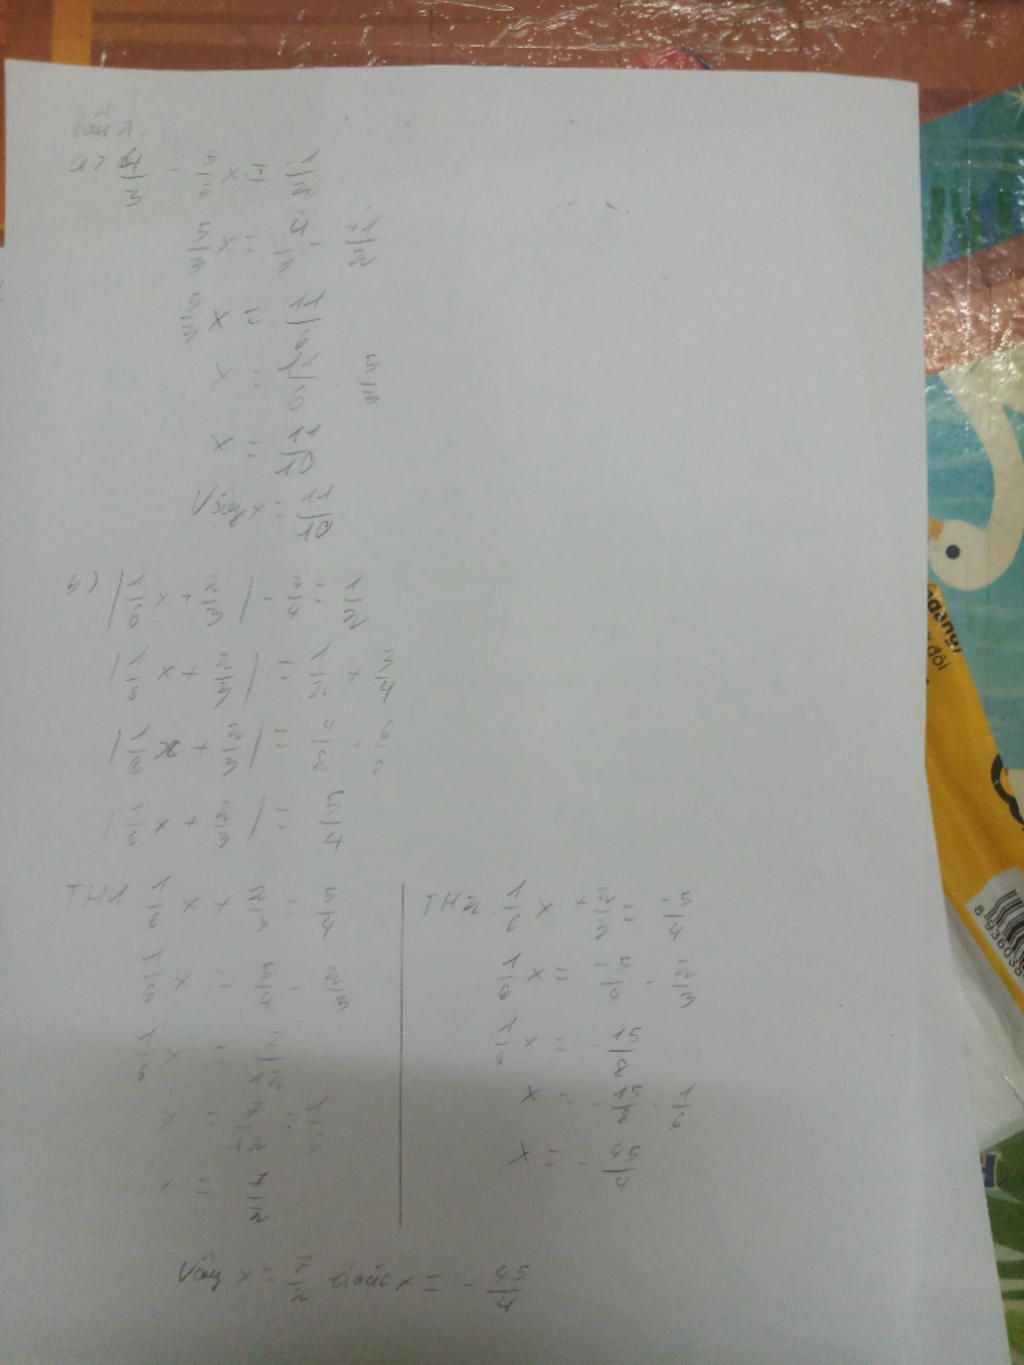 Bài 1.
a) 4/3 - 5/3 x = -1/2
5/3 x = 4/3 - -1/2
5/3 x = 11/6
x = 11/6 : 5/3
x = 11/10
Vậy x = 11/10
b) |1/6 x + 2/3| - 3/4 = 1/2
|1/6 x + 2/3| = 1/2 + 3/4
|1/6 x + 2/3| =
|1/6 x + 2/3| = 5/4
TH1 1/6 x + 2/3 = 5/4
1/6 x = 5/4 - 2/3
1/6 x = 7/12
x = 7/12 :
x = 7/2
TH2. 1/6 x + 2/3 = -5/4
1/6 x = -5/4 - 2/3
1/6 x = -15/8
x = -15/8 : 1/6
x = -45/4
Vậy x = 7/2 hoặc x = -45/4
8 936036
đôi